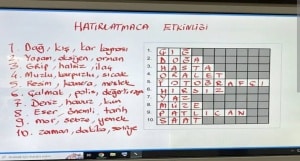 HATIRLATMACA ETKİNLİĞİ
1. Dağ, kış, kar topu
2. Yaşam, oksijen, orman
3. Grip, halsiz, ilaç
4. Muzlu, karpuzlu, sıcak
5. Resim, kamera, meslek
6. Çalmak, polis, değerli eşya
7. Deniz, havuz, kum
8. Eser, önemli, tarih
9. mor, sebze, yemek
10. zaman, dakika, saniye
1. ÇIĞ
2. DOĞA
3. HASTA
4. ORALET
5. FOTOĞRAFÇI
6. HIRSIZ
7. YAZ
8. MÜZE
9. PATLICAN
10. SAAT